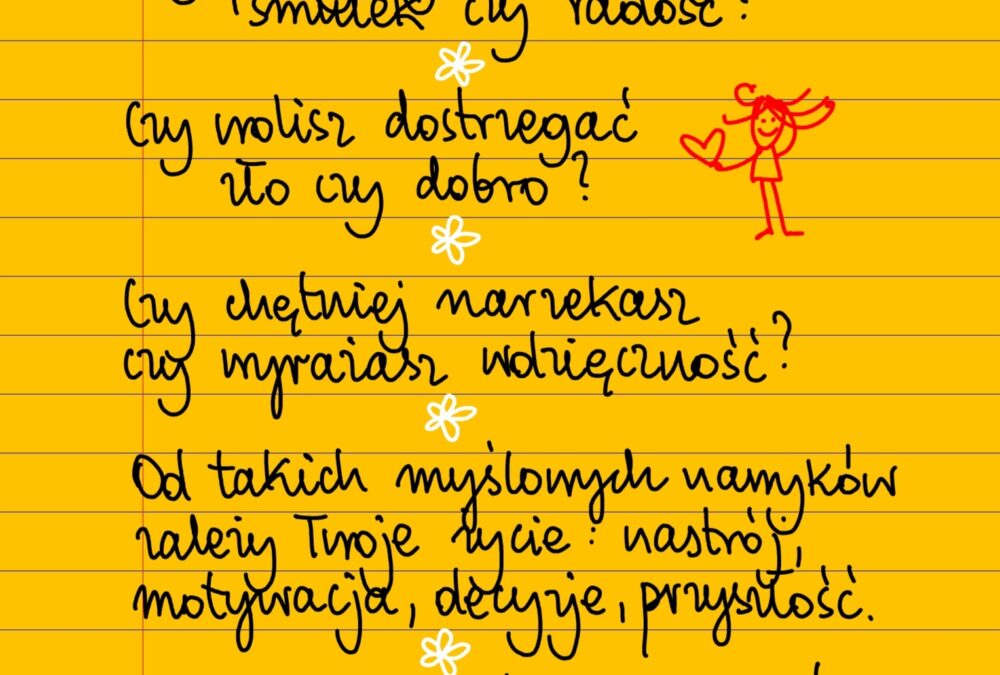 smutek czy radość?
Czy wolisz dostrzegać
zło czy dobro?
Czy chętniej narzekasz
czy wyrażasz wdzięczność?
Od takich myślowych nawyków
zależy Twoje życie: nastrój,
motywacja, decyzje, przyszłość.